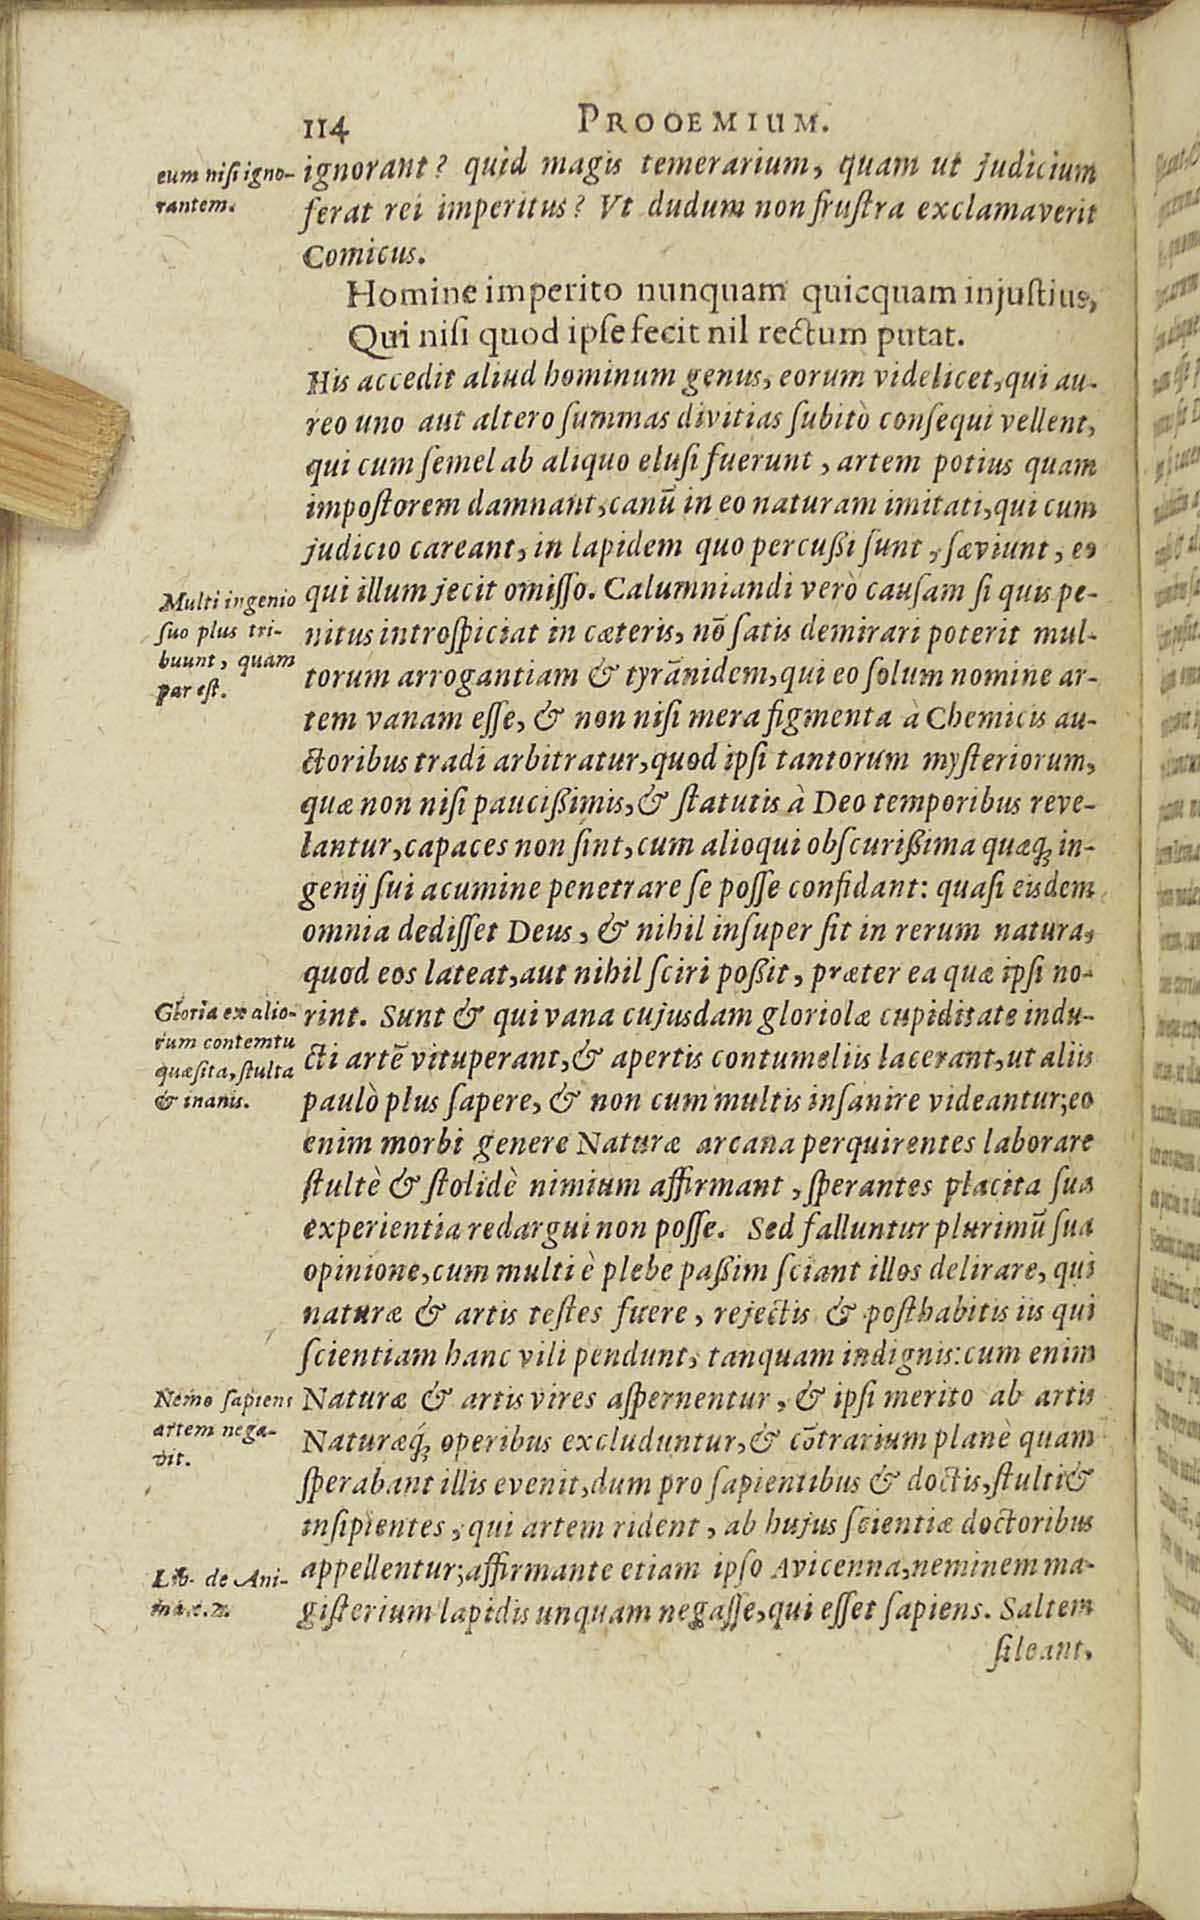 114 PROOEMIUM.
eum nisi igno-
rantem.
ignorant? quid magis temerarium, quam ut judicium
ferat rei imperitus? Vt dudum non frustra exclamaverit
Comicus.
Homine imperito nunquam quicquam injustius,
Qui nisi quod ipse fecit nil rectum putat.
His accedit aliud hominum genus, eorum videlicet, qui au-
reo uno aut altero summas divitias subitò consequi vellent,
qui cum semel ab aliquo elusi fuerunt, artem potius quam
impostorem damnant, canū in eo naturam imitati, qui cum
judicio careant, in lapidem quo percussi sunt, sæviunt, eo
Multi ingenio
suo plus tri-
buunt, quam
par est.
qui illum jecit omisso. Calumniandi verò causam si quis pe-
nitus introspiciat in cæteris, nō satis demirari poterit mul-
torum arrogantiam & tyrānidem, qui eo solum nomine ar-
tem vanam esse, & non nisi mera figmenta à Chemicis au-
ctoribus tradi arbitratur, quod ipsi tantorum mysteriorum,
quæ non nisi paucissimis, & statutis à Deo temporibus reve-
lantur, capaces non sint, cum alioqui obscurissima quæq; in-
genij sui acumine penetrare se posse confidant: quasi eisdem
omnia dedisset Deus, & nihil insuper sit in rerum natura,
quod eos lateat, aut nihil sciri possit, præter ea quæ ipsi no-
Gloria ex alio-
rum contemtu
quæsita, stulta
& inanis.
rint. Sunt & qui vana cujusdam gloriolæ cupiditate indu-
cti artē vituperant, & apertis contumeliis lacerant, ut aliis
paulò plus sapere, & non cum multis insanire videantur; eo
enim morbi genere Naturæ arcana perquirentes laborare
stultè & stolidè nimium affirmant, sperantes placita sua
experientia redargui non posse. Sed falluntur plurimū sua
opinione, cum multi è plebe passim sciant illos delirare, qui
naturæ & artis testes fuere, rejectis & posthabitis iis qui
scientiam hanc vili pendunt, tanquam indignis: cum enim
Nemo sapiens
artem nega-
vit.
Naturæ & artis vires aspernentur, & ipsi merito ab artis
Naturæq́; operibus excluduntur, & cōtrarium planè quam
sperabant illis evenit, dum pro sapientibus & doctis, stulti &
insipientes, qui artem rident, ab hujus scientiæ doctoribus
Lib. de Ani-
ma. c. 2.
appellentur; affirmante etiam ipso Avicenna, neminem ma-
gisterium lapidis unquam negasse, qui esset sapiens. Saltem
sileant,